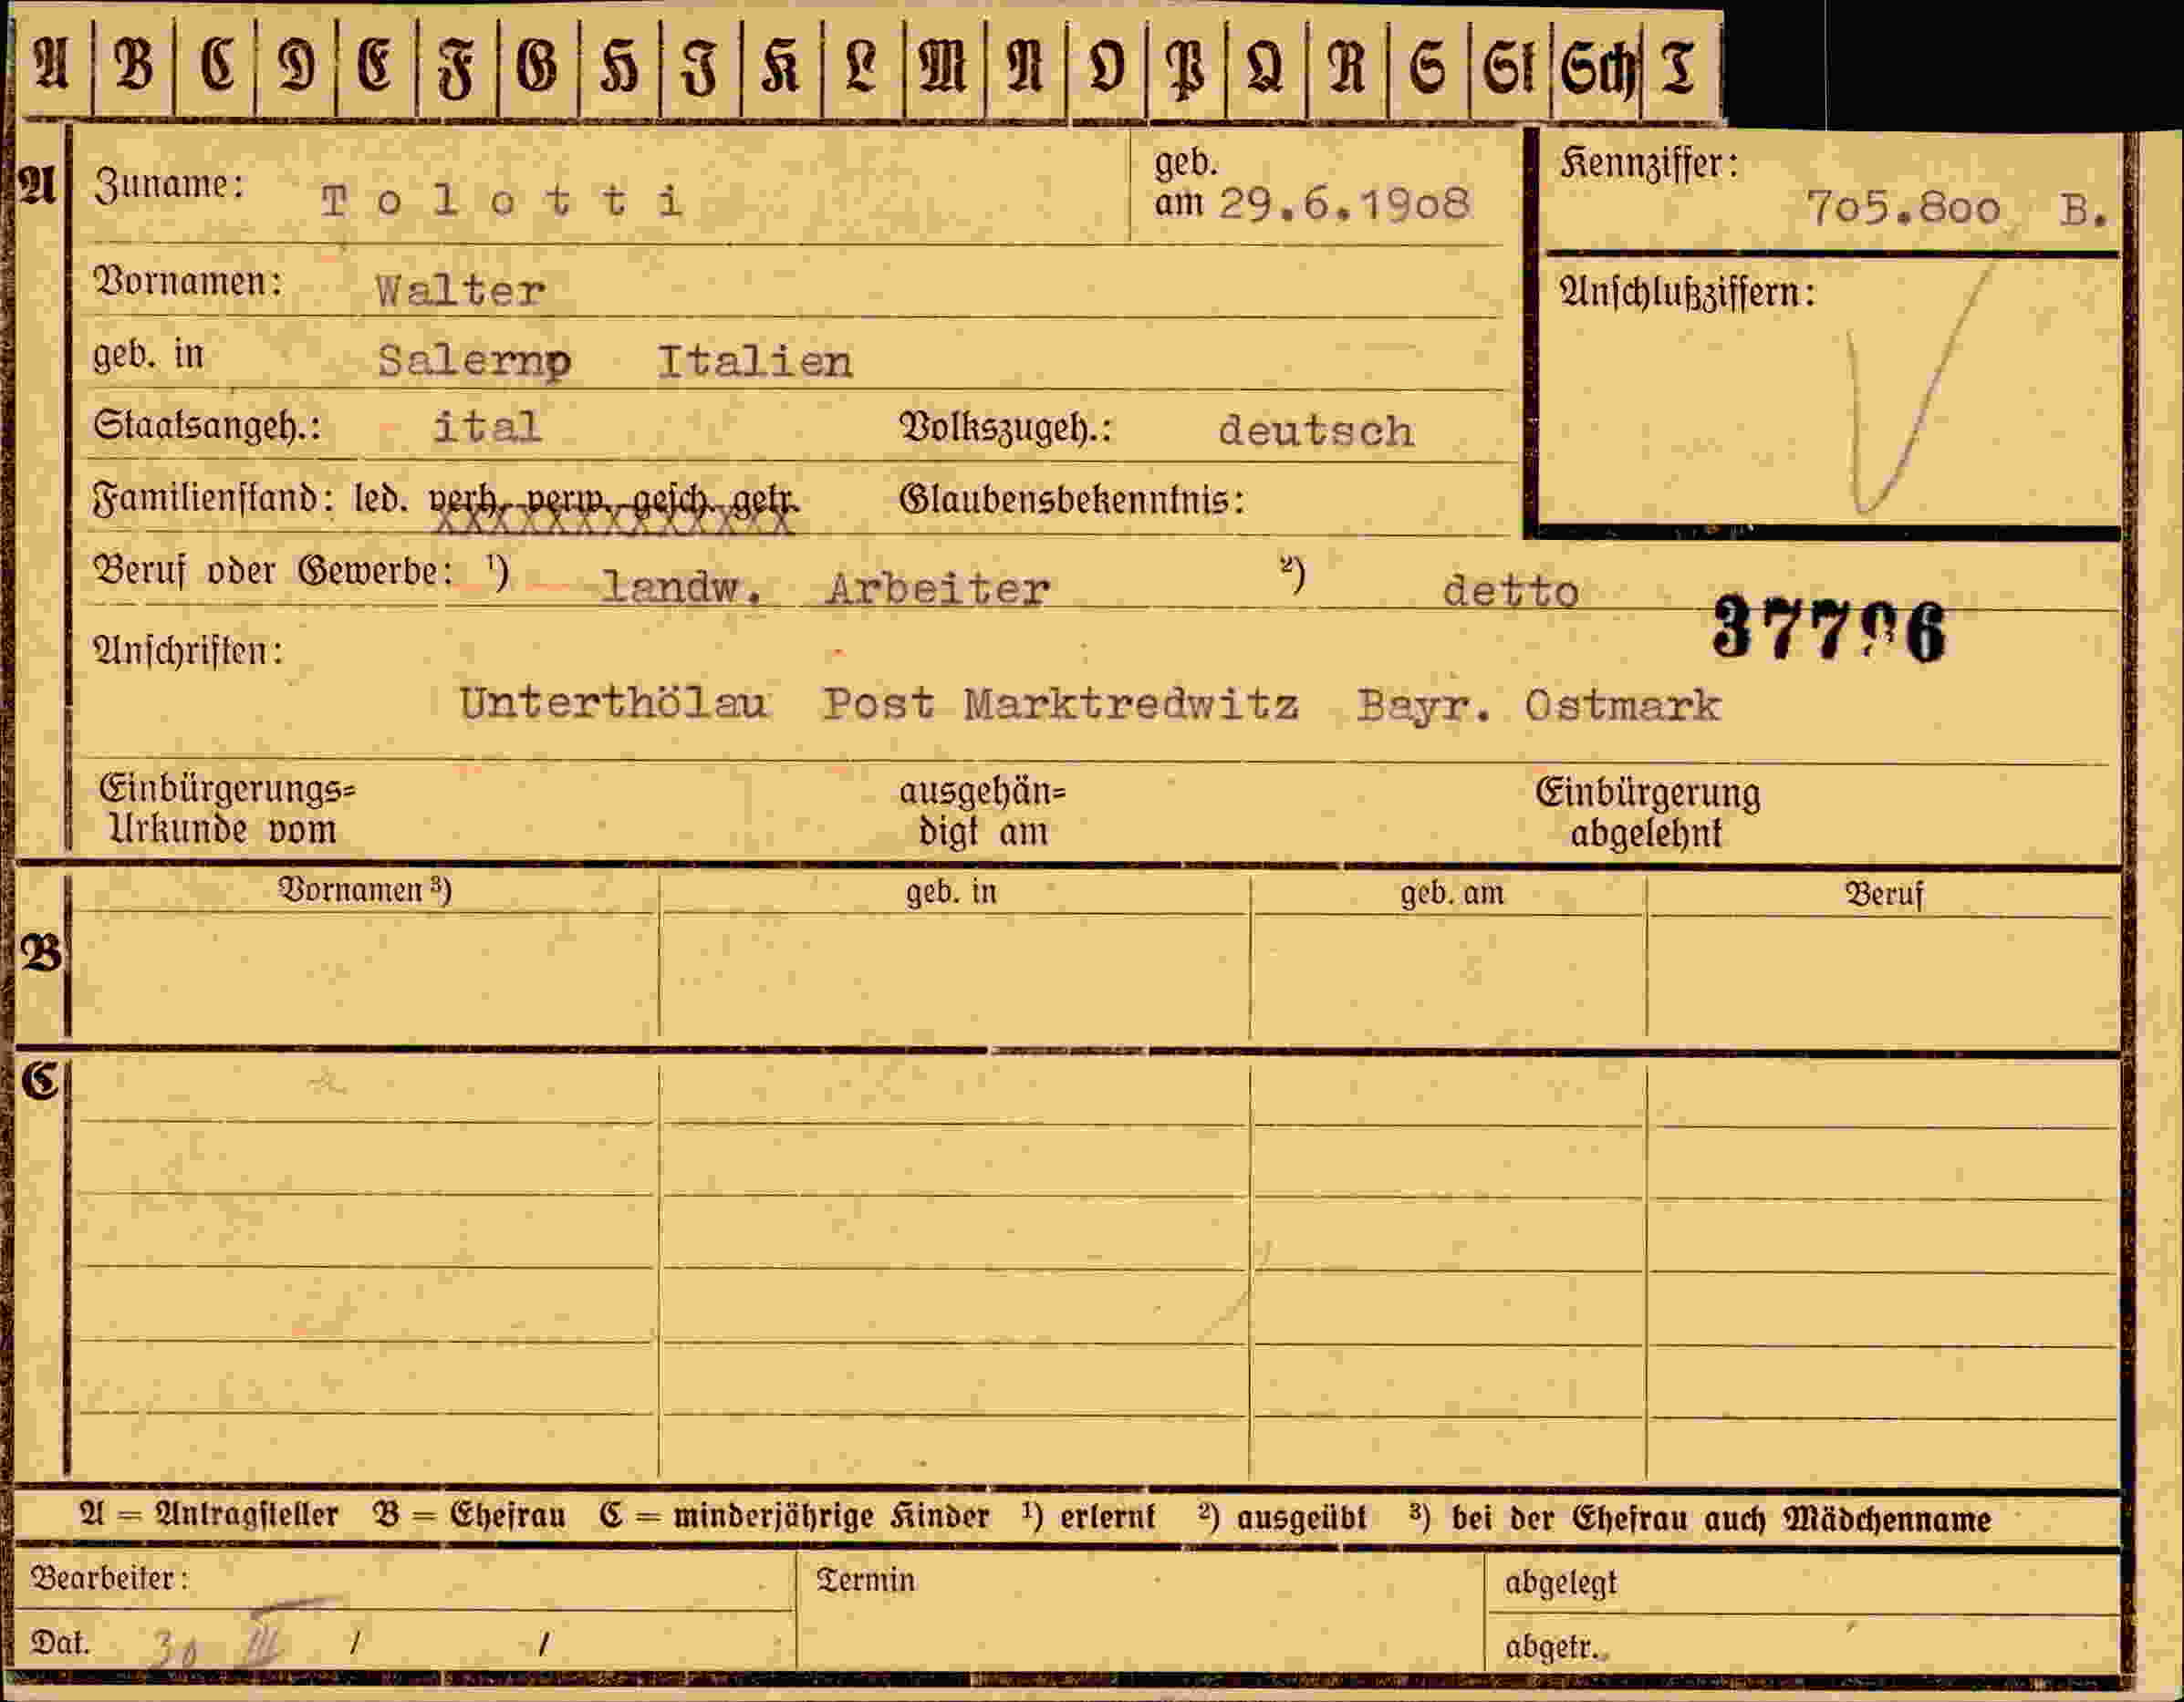 A B C D E F G H I K L M N O P Q R S St Sch T
A Zuname: Tolotti geb. am 29.6.1908 Kennziffer: 705.800 B.
Vornamen: Walter Anschlußziffern:
geb. in Salernp Italien
Staatsangeh.: ital Volkszugeh.: deutsch
Familienstand: led. verh. verw. gesch. getr. Glaubensbekenntnis:
Beruf oder Gewerbe: ¹) landw. Arbeiter ²) detto
Anschriften:
Unterthölau Post Marktredwitz Bayr. Ostmark
Einbürgerungs=
Urkunde vom
ausgehän=
digt am
Einbürgerung
abgelehnt
Vornamen ³) geb. in geb. am Beruf
B
C
A = Antragsteller B = Ehefrau C = minderjährige Kinder ¹) erlernt ²) ausgeübt ³) bei der Ehefrau auch Mädchenname
Bearbeiter: Termin abgelegt
Dat. 30 III / / abgetr.